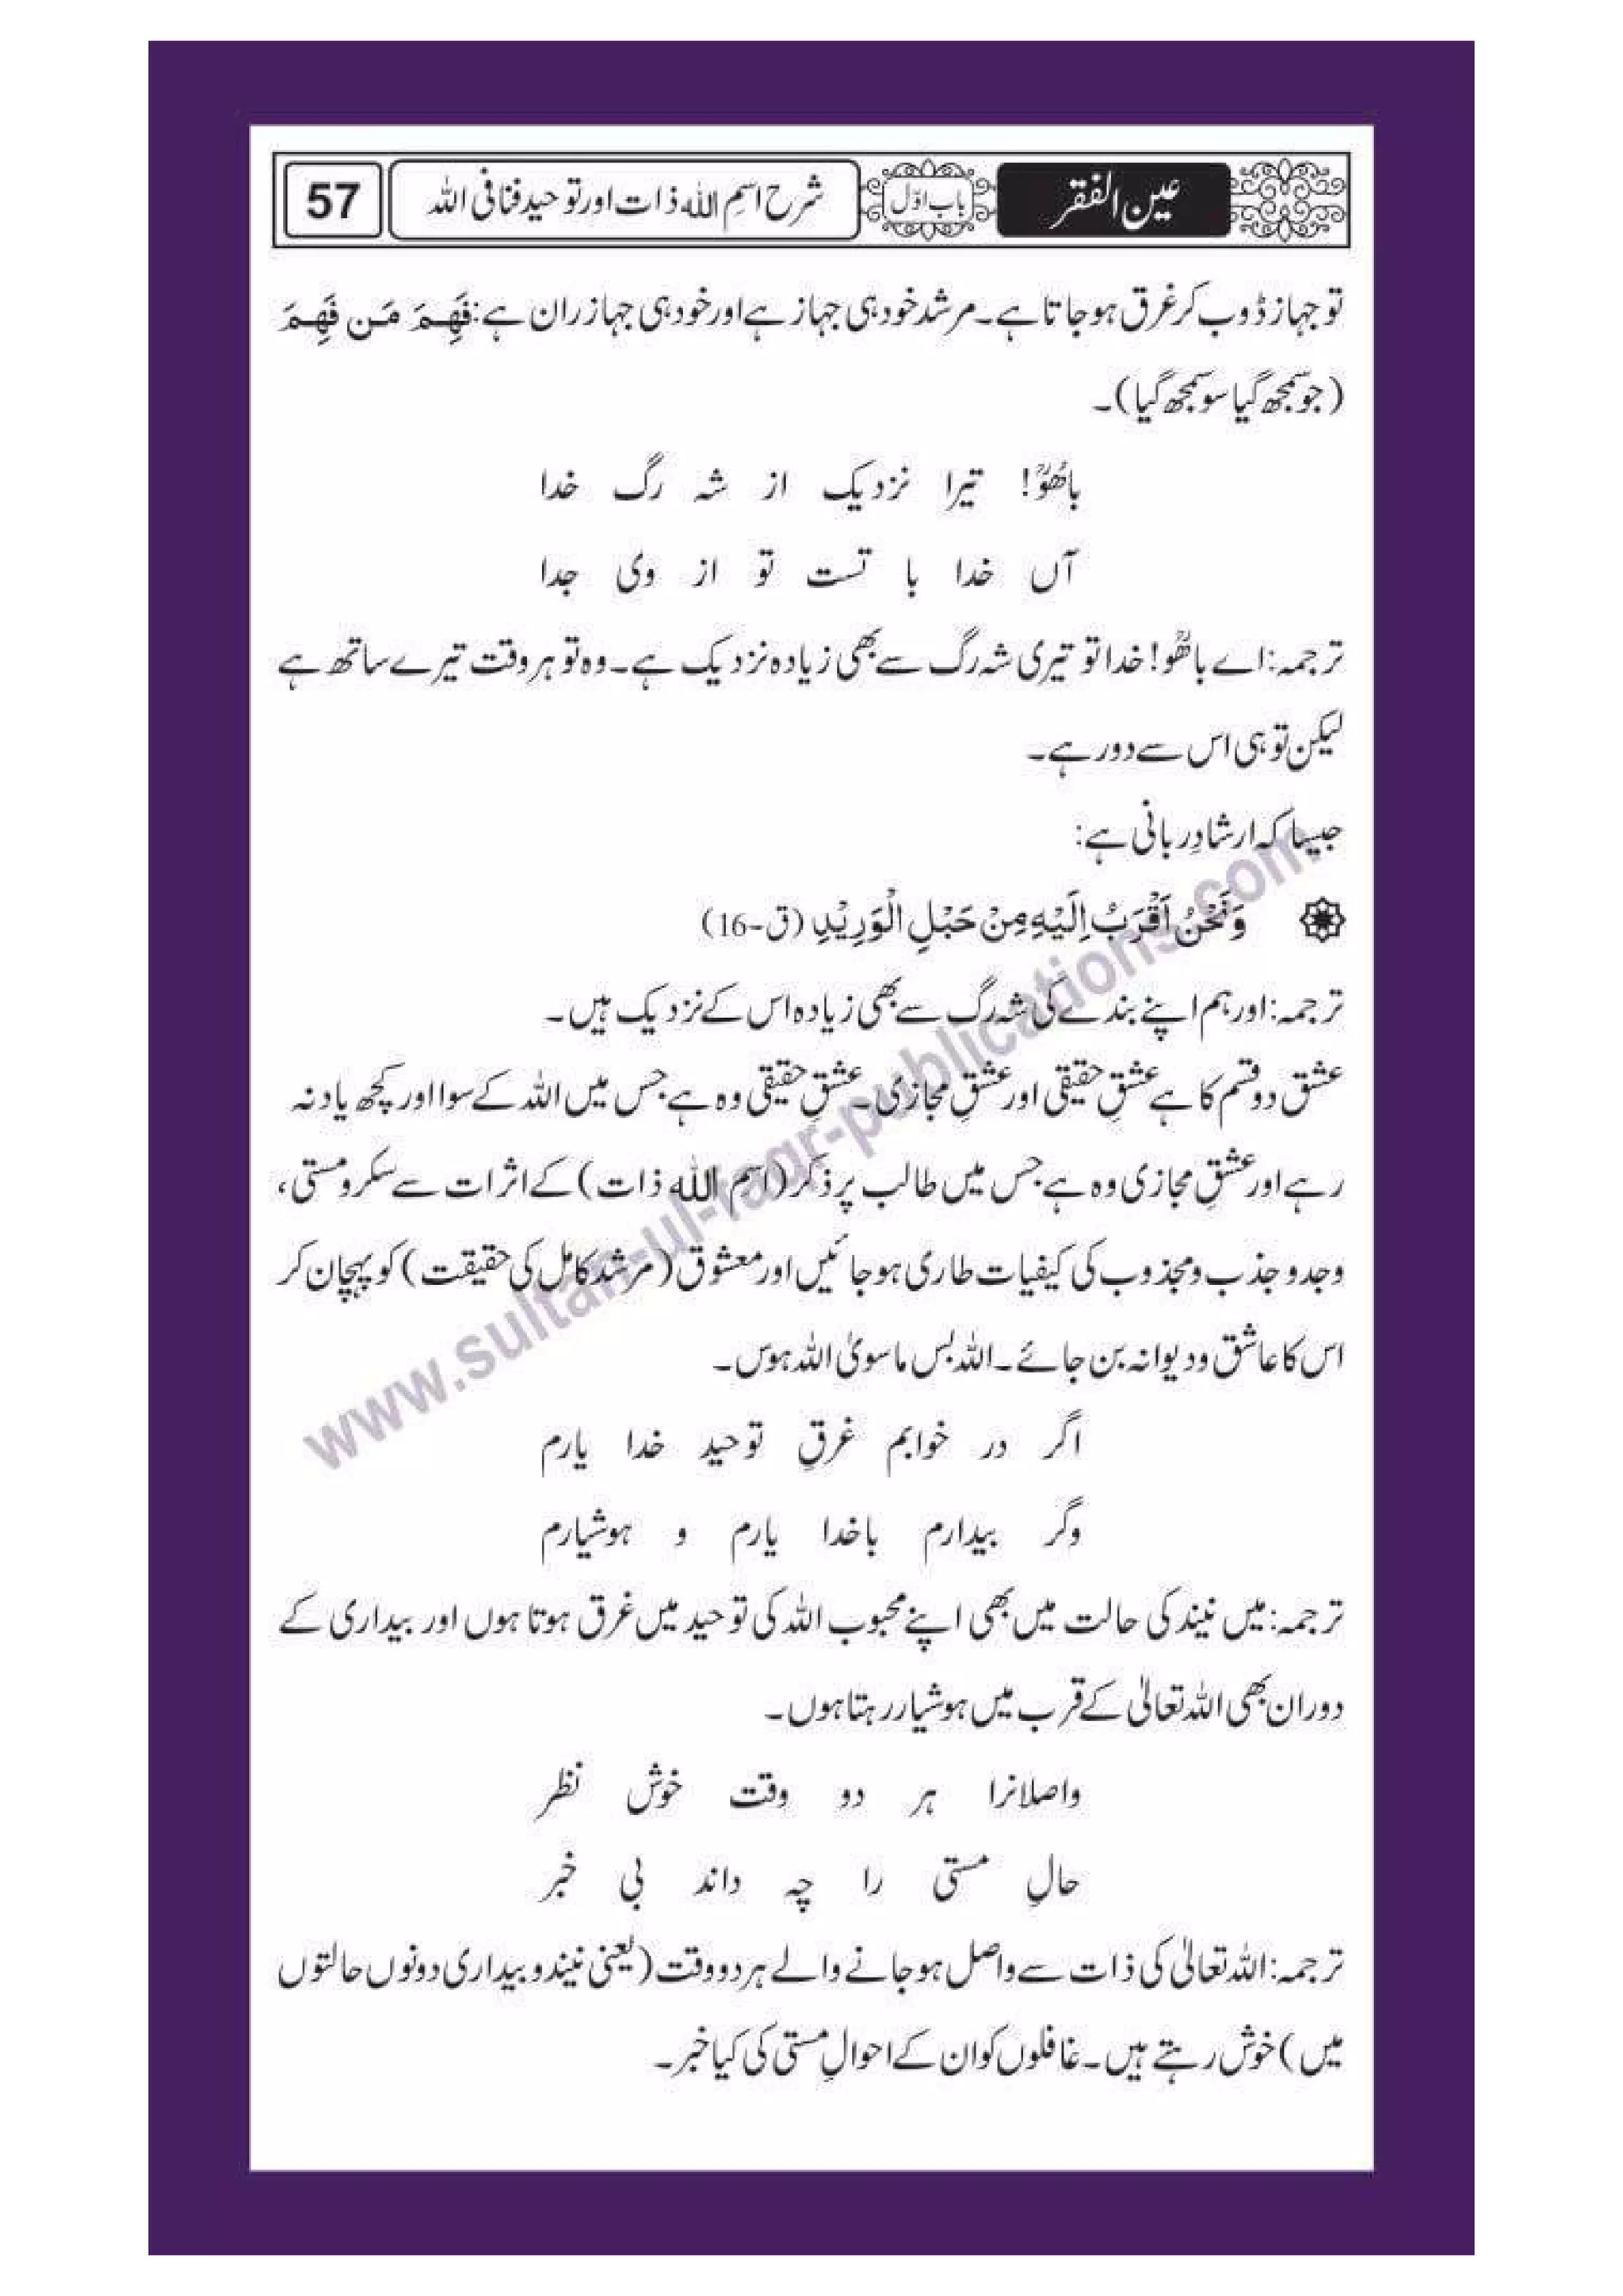 عین الفقر باب اوّل شرح اسمِ اللہ ذات اور توحید فنا فی اللہ 57
تو جہاز ڈوب کر غرق ہو جاتا ہے۔ مرشد خود ہی جہاز ہے اور خود ہی جہاز ران ہے: فَهِمَ مَن فَهِمَ
(جو سمجھ گیا سو سمجھ گیا)۔
باھُوؒ! تیرا نزدیک از شہ رگ خدا
آں خدا با تست تو از وی جدا
ترجمہ: اے باھُوؒ! خدا تو تیری شہ رگ سے بھی زیادہ نزدیک ہے۔ وہ تو ہر وقت تیرے ساتھ ہے
لیکن تو ہی اس سے دور ہے۔
جیسا کہ ارشادِ ربانی ہے:
وَنَحْنُ اَقْرَبُ اِلَيْهِ مِنْ حَبْلِ الْوَرِيْدِ (ق-16)
ترجمہ: اور ہم اپنے بندے کی شہ رگ سے بھی زیادہ اس کے نزدیک ہیں۔
عشق دو قسم کا ہے عشقِ حقیقی اور عشقِ مجازی۔ عشقِ حقیقی وہ ہے جس میں اللہ کے سوا اور کچھ یاد نہ
رہے اور عشقِ مجازی وہ ہے جس میں طالب پر ذکر (اسم اللہ ذات) کے اثرات سے سکر و مستی،
وجد و جذب و مجذوب کی کیفیات طاری ہو جائیں اور معشوق (مرشد کامل کی حقیقت) کو پہچان کر
اس کا عاشق و دیوانہ بن جائے۔ اللہ بس ماسویٰ اللہ ہوس۔
اگر در خوابم غرقِ توحید خدا یارم
وگر بیدارم باخدا یارم و ہوشیارم
ترجمہ: میں نیند کی حالت میں بھی اپنے محبوب اللہ کی توحید میں غرق ہوتا ہوں اور بیداری کے
دوران بھی اللہ تعالیٰ کے قرب میں ہوشیار رہتا ہوں۔
واصلانرا ہر دو وقت خوش نظر
حالِ مستی را چہ داند بی خبر
ترجمہ: اللہ تعالیٰ کی ذات سے واصل ہو جانے والے ہر دو وقت (یعنی نیند و بیداری دونوں حالتوں
میں) خوش رہتے ہیں۔ غافلوں کو ان کے احوالِ مستی کی کیا خبر۔
www.sultan-ul-faqr-publications.com